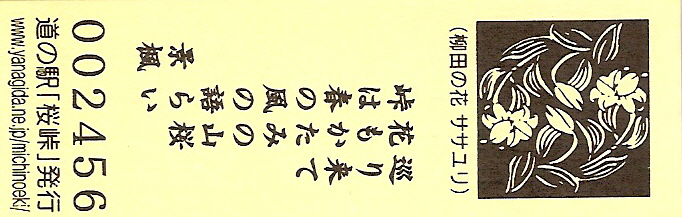 (柳田の花 ササユリ)
巡り来て
花もかたみの山桜
峠は春の風の語らい
景楓
002456
道の駅「桜峠」発行
www.yanagida.ne.jp/michinoeki/